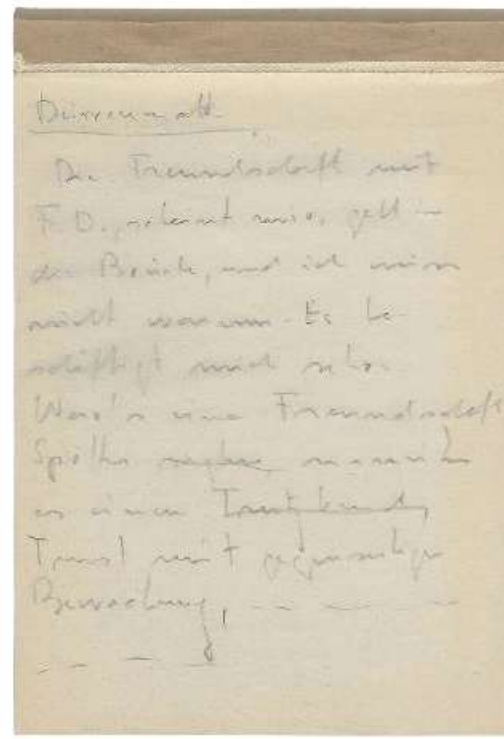 Dürrenmatt
Die Freundschaft mit
F. D., scheint mir, geht in
die Brüche, und ich weiss
nicht warum. Es be-
schäftigt mich sehr.
War's eine Freundschaft
Spötter nannten
es einen Trutzbund,
Trust mit gegenseitiger
Bewachung, — — — —
— — —